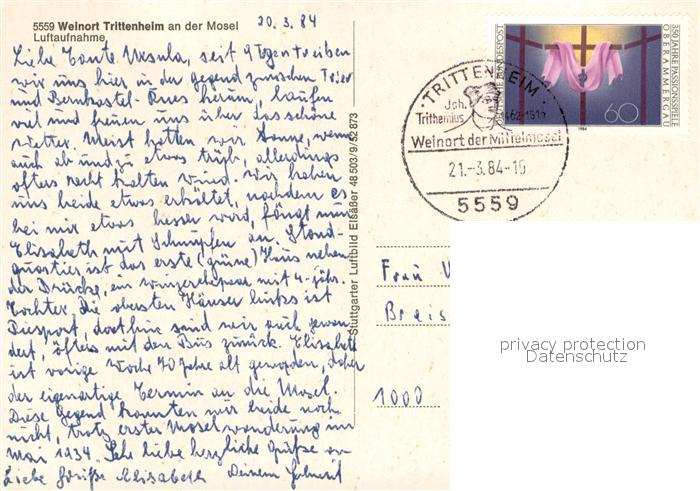 5559 Weinort Trittenheim an der Mosel
Luftaufnahme
20.3.84
Liebe Tante Ursula, seit 9 Tagen treiben
wir uns hier in der Gegend zwischen Trier
und Bernkastel-Kues herum, laufen
viel und freuen uns über das schöne
Wetter. Meist hatten wir Sonne, wenn
auch ab und zu etwas trüb, allerdings
öfters recht kalten Wind. Wir haben
uns beide etwas erkältet, nachdem es
bei mir etwas besser wird, fängt nun
Elisabeth mit Schnupfen an. Stand-
quartier ist das erste (grüne) Haus neben
der Brücke, ein Winzerehepaar mit 4-jähr.
Tochter. Die obersten Häuser links ist
Piesport, dorthin sind wir auch gewan-
dert, öfters mit dem Bus zurück. Elisabeth
ist vorige Woche 70 Jahre alt geworden, daher
der eigenartige Termin an die Mosel.
Diese Gegend kannten wir beide noch
nicht, trotz erster Moselwanderung im
Mai 1934. Sehr liebe herzliche Grüße von
Liebe Grüße Elisabeth Deinem
Stuttgarter Luftbild Elsäßer 48 503/9/52 873
DEUTSCHE BUNDESPOST
550 JAHRE PASSIONSSPIELE
OBERAMMERGAU
60
1984
· TRITTENHEIM ·
Joh.
Trithemius
1462-1516
Weinort der Mittelmosel
21.-3.84-16
5559
Frau
Breis
1000
privacy protection
Datenschutz